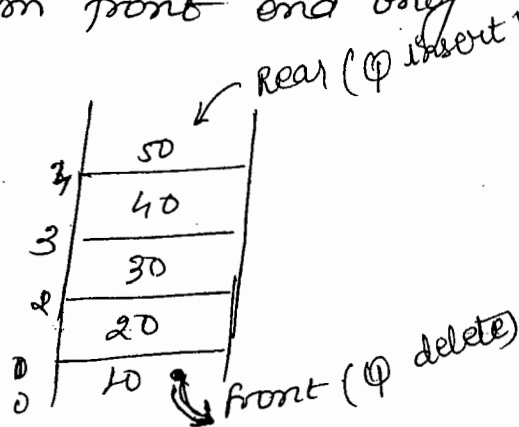 from front end only
Rear (Q insert)
50
4
40
3
30
2
20
1
10
0
front (Q delete)